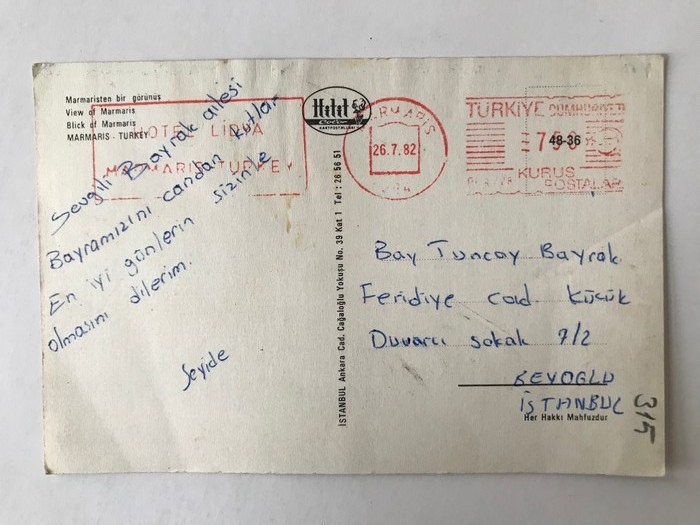 Marmaristen bir görünüş
View of Marmaris
Blick of Marmaris
MARMARIS - TURKEY
HOTEL LIDYA
MARMARIS TURKEY
Sevgili Bayrak ailesi
Bayramınızı candan kutlar
En iyi günlerin sizinle
olmasını dilerim.
Seyide
Color
KARTPOSTALLARI
İSTANBUL Ankara Cad. Cağaloğlu Yokuşu No. 39 Kat 1 Tel : 26 56 51
MARMARİS
26.7.82
TÜRKİYE CUMHURİYETİ
750
48-36
KURUŞ
POSTALARI
Bay Tuncay Bayrak
Feridiye cad Küçük
Duvarcı sokak 7/2
BEYOĞLU
İSTANBUL
Her Hakkı Mahfuzdur
315